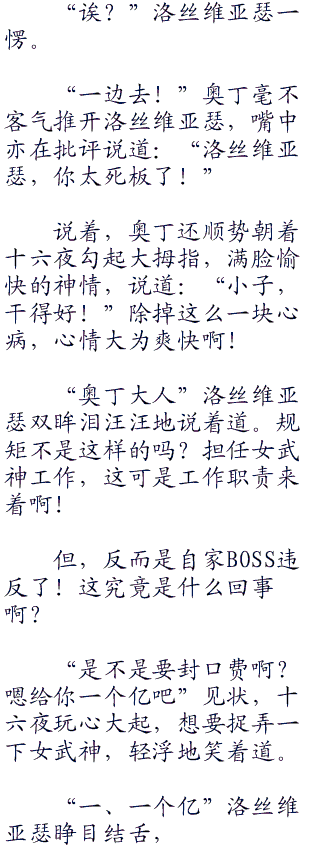 “诶？”洛丝维亚瑟一
愣。
“一边去！”奥丁毫不
客气推开洛丝维亚瑟，嘴中
亦在批评说道：“洛丝维亚
瑟，你太死板了！”
说着，奥丁还顺势朝着
十六夜勾起大拇指，满脸愉
快的神情，说道：“小子，
干得好！”除掉这么一块心
病，心情大为爽快啊！
“奥丁大人”洛丝维亚
瑟双眸泪汪汪地说着道。规
矩不是这样的吗？担任女武
神工作，这可是工作职责来
着啊！
但，反而是自家BOSS违
反了！这究竟是什么回事
啊？
“是不是要封口费啊？
嗯给你一个亿吧”见状，十
六夜玩心大起，想要捉弄一
下女武神，轻浮地笑着道。
“一、一个亿”洛丝维
亚瑟睁目结舌，